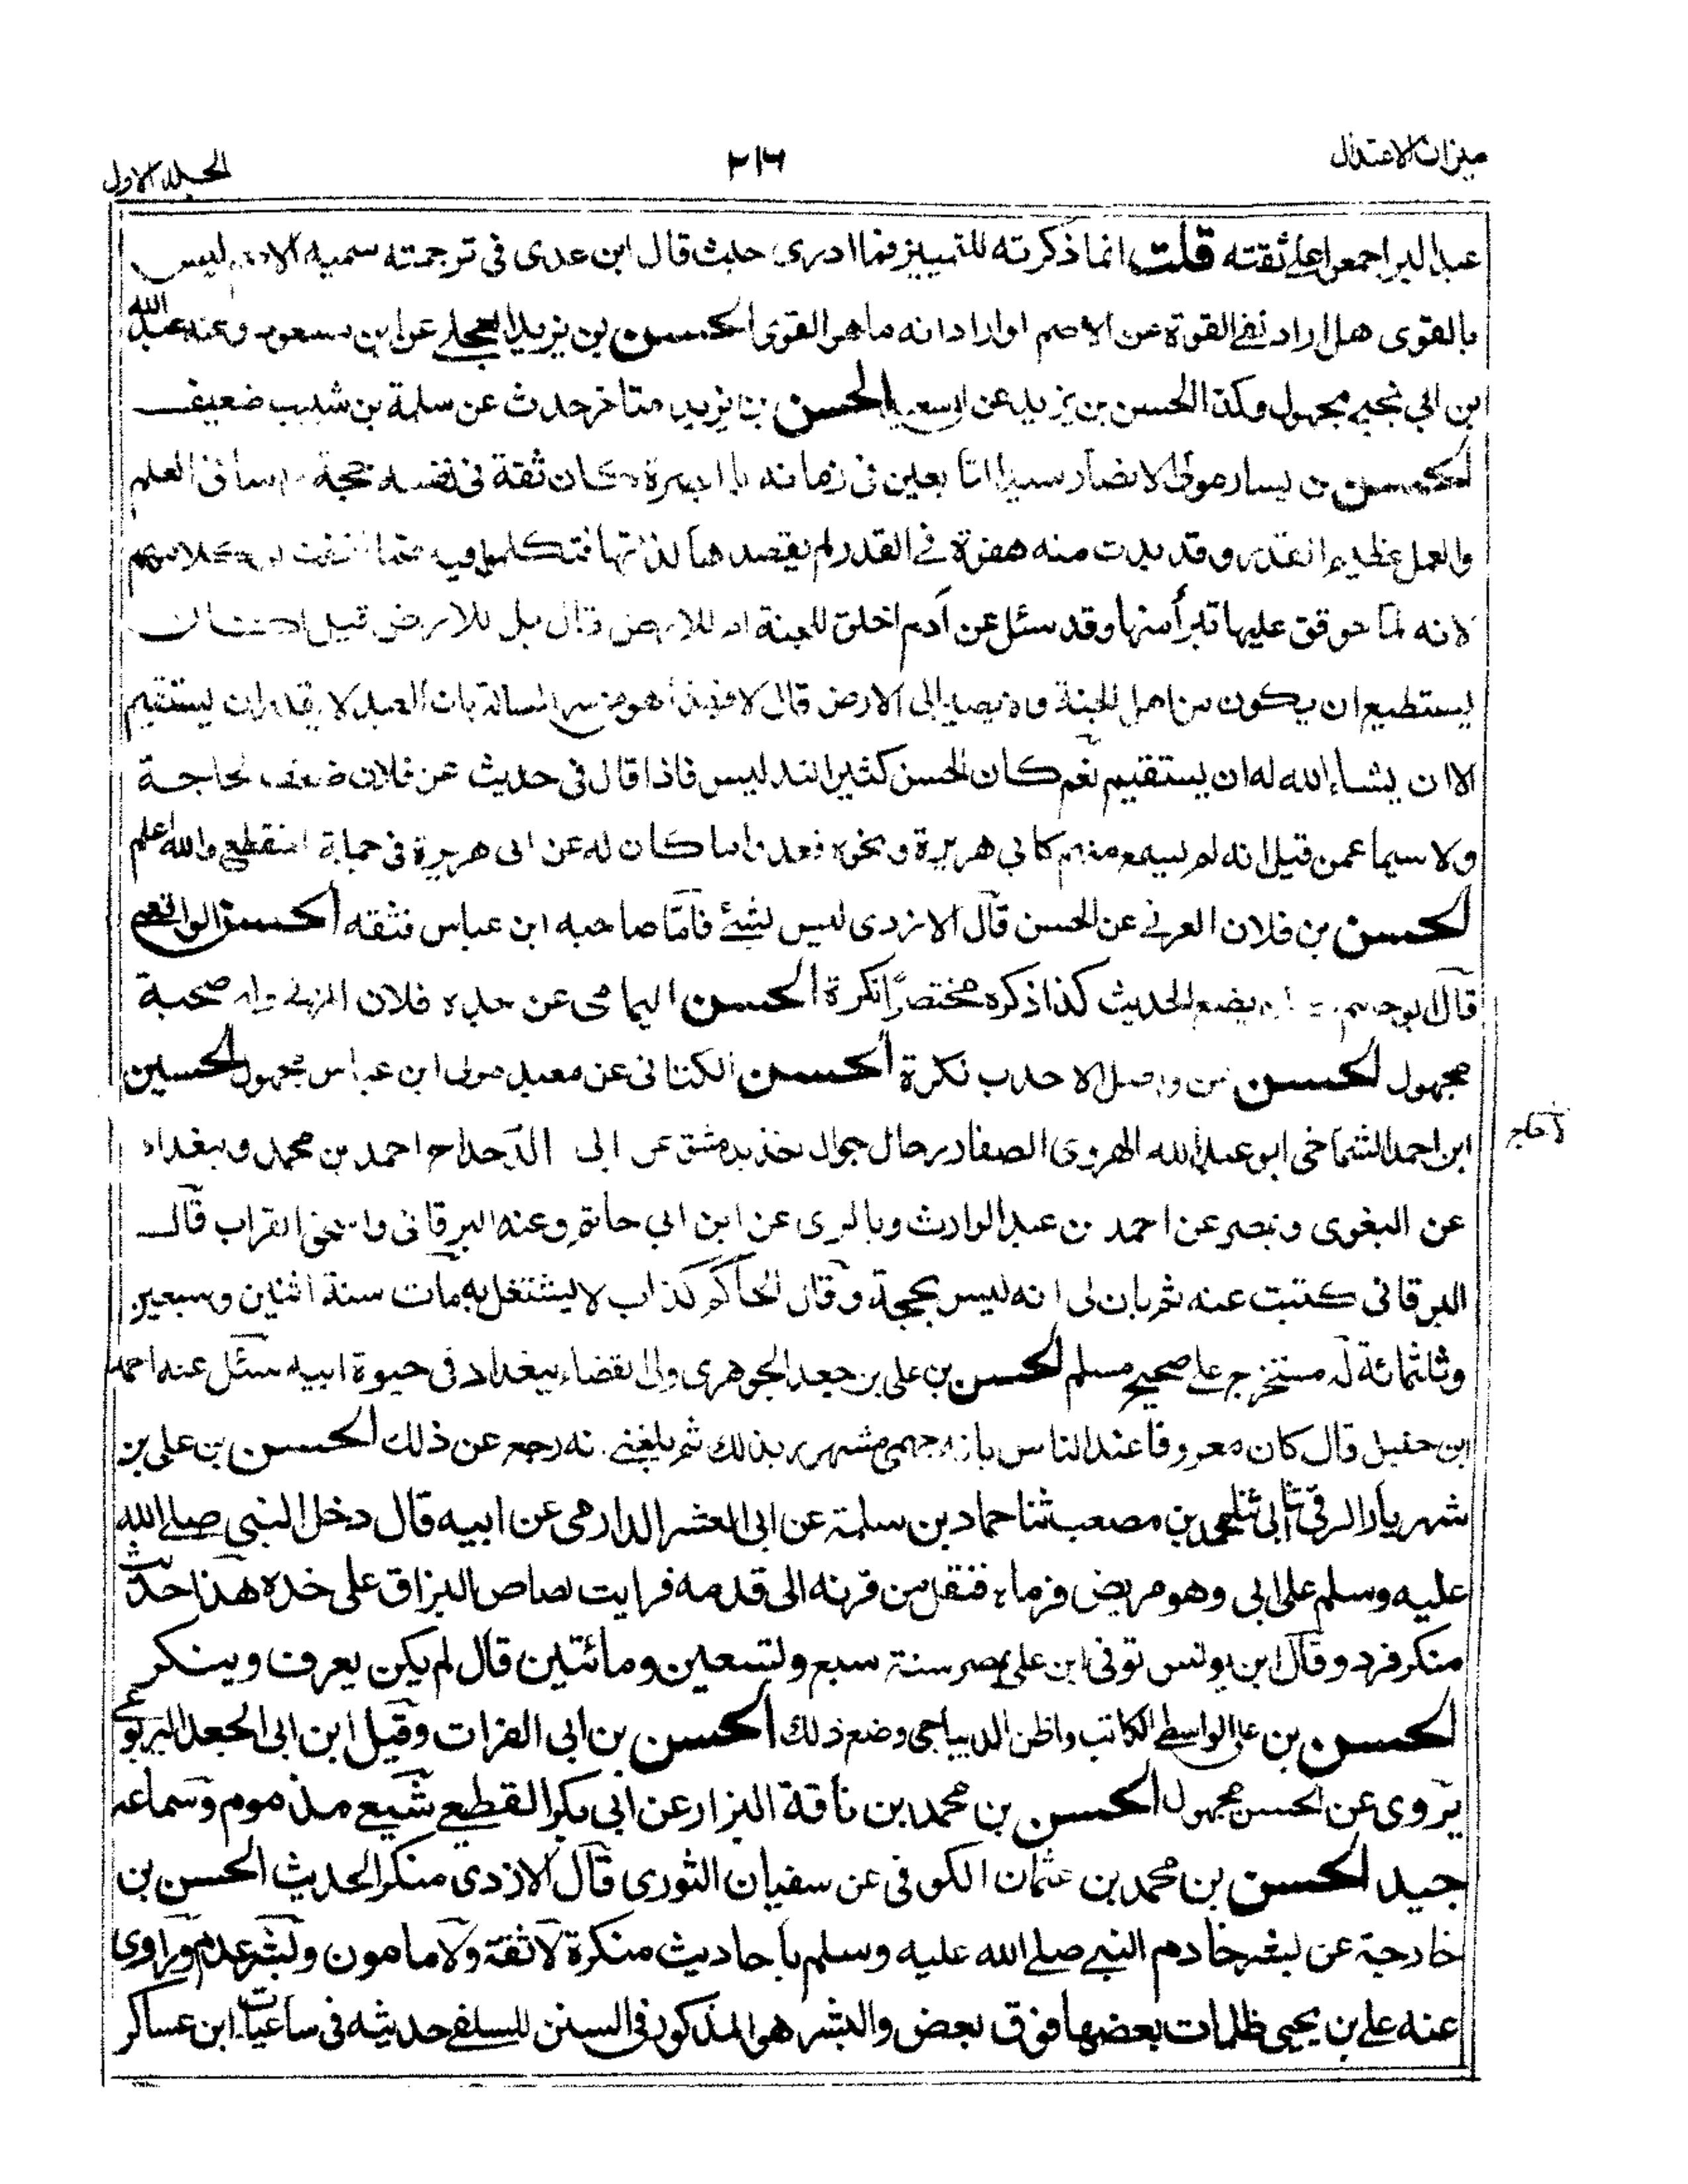 ميزان الاعتدال
٢١٦
الجلد الاول
عبد البر اجمعوا على ثقته قلت انما ذكرته للتمييز فما ادرى حيث قال ابن عدى فى ترجمته سميه ليس
بالقوى هل اراد نفى القوة عن الاصم او اراد انه ما هو القوى الحسن بن يزيد العجلى عن ابن مسعود وعنه عبد الله
بن ابى نجيح مجهول وكذا الحسن بن يزيد عن ابى سعيد الحسن بن يزيد متاخر حدث عن سلمة بن شبيب ضعيف
الحسن بن يسار مولى الانصار سيد التابعين فى زمانه بالبصرة كان ثقة فى نفسه حجة راسا فى العلم
والعمل عظيم القدر وقد بدت منه هفوة فى القدر لم يقصدها لذاتها فتكلموا فيه فما التفت الى كلامهم
لانه لما حوقق عليها تبرأ منها وقد سئل عن آدم اخلق للجنة ام للارض قال بل للارض قيل اكان
يستطيع ان يكون من اهل الجنة ولا يصير الى الارض قال لا فهذا هو من سر المسالة بان العبد لا يقدر ان يستقيم
الا ان يشاء الله له ان يستقيم نعم كان الحسن كثير التدليس فاذا قال فى حديث عن فلان ضعف لحاجة
ولا سيما عمن قيل انه لم يسمع منهم كابى هريرة ونحوه فعدوا ما كان له عن ابى هريرة فى جملة المنقطع والله اعلم
الحسن بن فلان العرنى عن الحسن قال الازدى ليس بشئ فاما صاحبه ابن عباس فثقه الحسن الواقعى
قال ابو يضع الحديث كذا ذكره مختصرا نكرة الحسن اليمامى عن جده فلان المزنى وله صحبة
مجهول الحسن بن واصل الاحدب نكرة الحسن الكنانى عن معبد مولى ابن عباس مجهول الحسين
ابن احمد الشماخى ابو عبد الله الهروى الصفار رحال جوال اخذ بدمشق عن ابى الدحداح احمد بن محمد وببغداد
عن البغوى وبمصر عن احمد بن عبد الوارث وبالرى عن ابن ابى حاتم وعنه البرقانى واسحق القراب قال
البرقانى كتبت عنه ثم بان لى انه ليس بحجة وقال الحاكم كذاب لا يشتغل به مات سنة اثنين وسبعين
وثلثمائة له مستخرج على صحيح مسلم الحسن بن على بن جعد الجوهرى ولى القضاء ببغداد فى حيوة ابيه سئل عنه احمد
ابن حنبل قال كان معروفا عند الناس بانه جهمى مشهور بذلك ثم بلغنى انه رجع عن ذلك الحسن بن على بن
شهريار الرقى ثنا بن مصعب ثنا حماد بن سلمة عن ابى العشر الدارمى عن ابيه قال دخل النبى صلى الله
عليه وسلم على ابى وهو مريض فرماه فنقل من قرنه الى قدمه فرايت لصاص البزاق على خده هذا حديث
منكر فرد وقال ابن يونس توفى ابن على بمصر سنة سبع وتسعين ومائتين قال لم يكن يعرف وينكر
الحسن بن على الواسطى الكاتب واظن الديباجى وضع ذلك الحسن بن ابى الفرات وقيل ابن ابى الجعد اليربوعى
يروى عن الحسن مجهول الحسن بن محمد بن ناقة البزار عن ابى بكر القطيعى شيعى مذموم وسماعه
جيد الحسن بن محمد بن عثمان الكوفى عن سفيان الثورى قال الازدى منكر الحديث الحسن بن
خارجة عن خادم النبى صلى الله عليه وسلم باحاديث منكرة لا ثقة ولا مامون وراوى
عنه على بن يحيى ظلمات بعضها فوق بعض والبشر هو المذكور فى السنن للسلفى حديثه فى ساعيات ابن عساكر